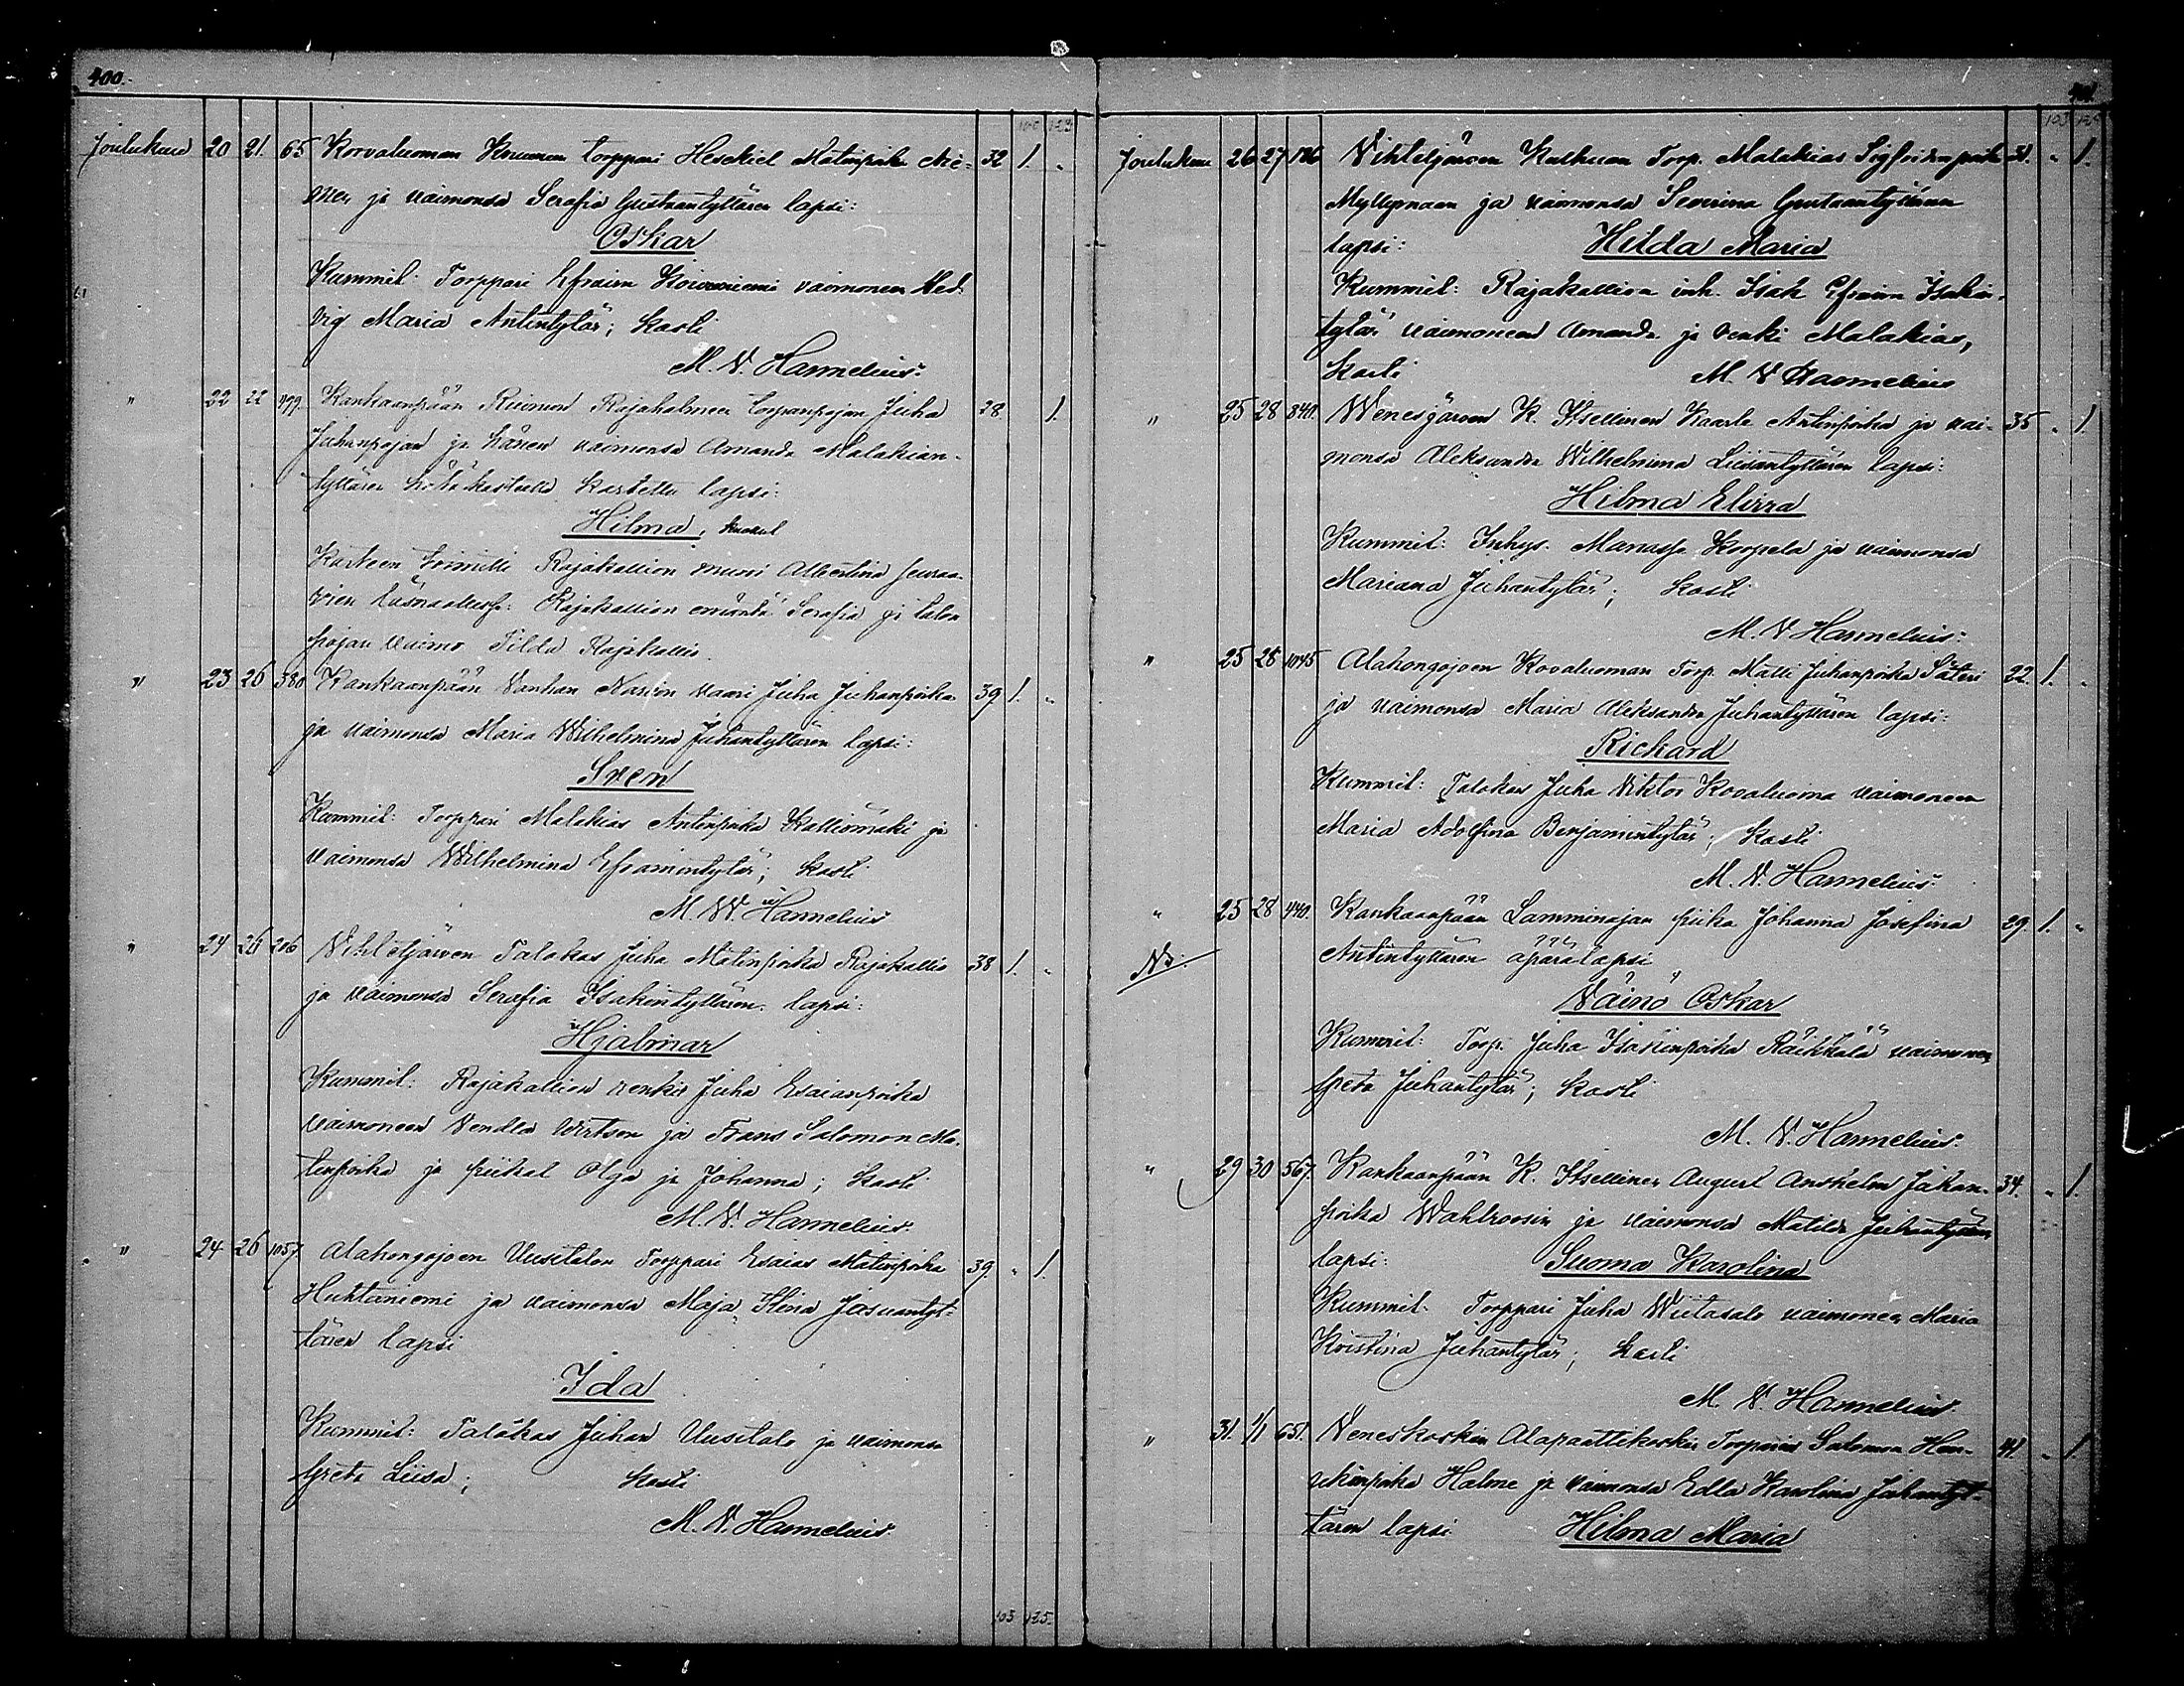 400.
Joulukuu 20 21. 65 Korvaluoman Knuunen torppari Heskiel Matinpoika Nie- 32 1. "
men ja vaimonsa Serafia Gustaantyttären lapsi:
Oskar
Kummit: Torppari Efraim Koivuniemi vaimoneen Hed-
vig Maria Antintytär; kasti
M. V. Hannelius.
" 22 22 499. Kankaanpään Ruiman Rajahalmeen torpanpojan Juha 28. 1.
Juhanpojan ja hänen vaimonsa Amanda Malakian-
tyttären hätäkasteella kastettu lapsi:
Hilma, kuoli
Kasteen toimitti Rajakallion muori Albertina seuraa-
vien läsnäollessa: Rajakallion emäntä Serafia ja talon
pojan vaimo Tilda Rajakallio.
" 23 26 380 Kankaanpään Vanhan Narvin vaari Juha Juhanpoika 39 1. "
ja vaimonsa Maria Wilhelmina Juhantyttären lapsi:
Sven
Kummit: Torppari Malakias Antinpoika Kalliomäki ja
vaimonsa Wilhelmina Eframintytär; kasti
M. W. Hannelius
" 24 26 206 Vihteljärven Talokas Juha Matinpoika Rajakallio 38 1. "
ja vaimonsa Serafia Isakintyttären lapsi:
Hjalmar
Kummit: Rajakallion renkit Juha Esaianpoika
vaimoneen Vendla Wirtsen ja Frans Salomon Ma-
tinpoika ja piikat Olga ja Johanna; kasti
M. V. Hannelius.
" 24 26 1057. Alahongojoen Uusitalon Torppari Esaias Matinpoika 39. " 1.
Huhtaniemi ja vaimonsa Maja Stina Josuantyt-
tären lapsi
Ida
Kummit: Talokas Juhan Uusitalo ja vaimonsa
Greta Liisa; kasti
M. V. Hannelius.
103 125.
103 125
Joulukuu 26 27 186 Vihteljärven Kulhuan Torp. Malakias Sigfridinpoika 31. " 1.
Myllymaan ja vaimonsa Severina Gustaantyttären
lapsi: Hilda Maria
Kummit: Rajakallion inh. Isak Efraim Isakin-
tytär vaimoneen Amanda ja renki Malakias,
kasti M. V Hannelius
" 25 28 840. Wenesjärven K. Itsellinen Kaarle Antinpoika ja vai- 35 " 1.
monsa Aleksandra Wilhelmina Liisantyttären lapsi:
Hilma Elviira
Kummit: Inhys. Manasse Korpela ja vaimonsa
Mariana Juhantytär; kasti
M. V. Hannelius.
" 25 28 1045 Alahongojoen Kovaluoman Torp. Matti Juhanpoika Säteri 22. 1. "
ja vaimonsa Maria Aleksandra Juhantyttären lapsi:
Rickard
Kummit: Talokas Juha Viktor Kovaluoma vaimoneen
Maria Adolfina Benjamintytär; kasti
M. V. Hannelius.
" 25 28 440. Kankaanpään Lamminojan piika Johanna Josefina 29. 1. "
Nb. Antintyttären äpärälapsi
Väinö Oskar
Kummit: Torp. Juha Isakinpoika Räikkälä vaimoneen
Greta Juhantytär; kasti
M. V. Hannelius.
" 29 30 567. Kankaanpään K. Itsellinen August Anshelm Juhan- 34. " 1.
poika Wahlroosin ja vaimonsa Matilda Juhantyttären
lapsi: Suoma Karolina
Kummit: Torppari Juha Wiitasalo vaimoneen Maria
Kristina Juhantytär; kasti
M. V. Hannelius.
" 31. 1/1 651. Veneskosken Alapaattikosken Torpparin Salomon Hen-
rikinpoika Halme ja vaimonsa Edla Karolina Juhantyt- 41. " 1.
tären lapsi Hilma Maria